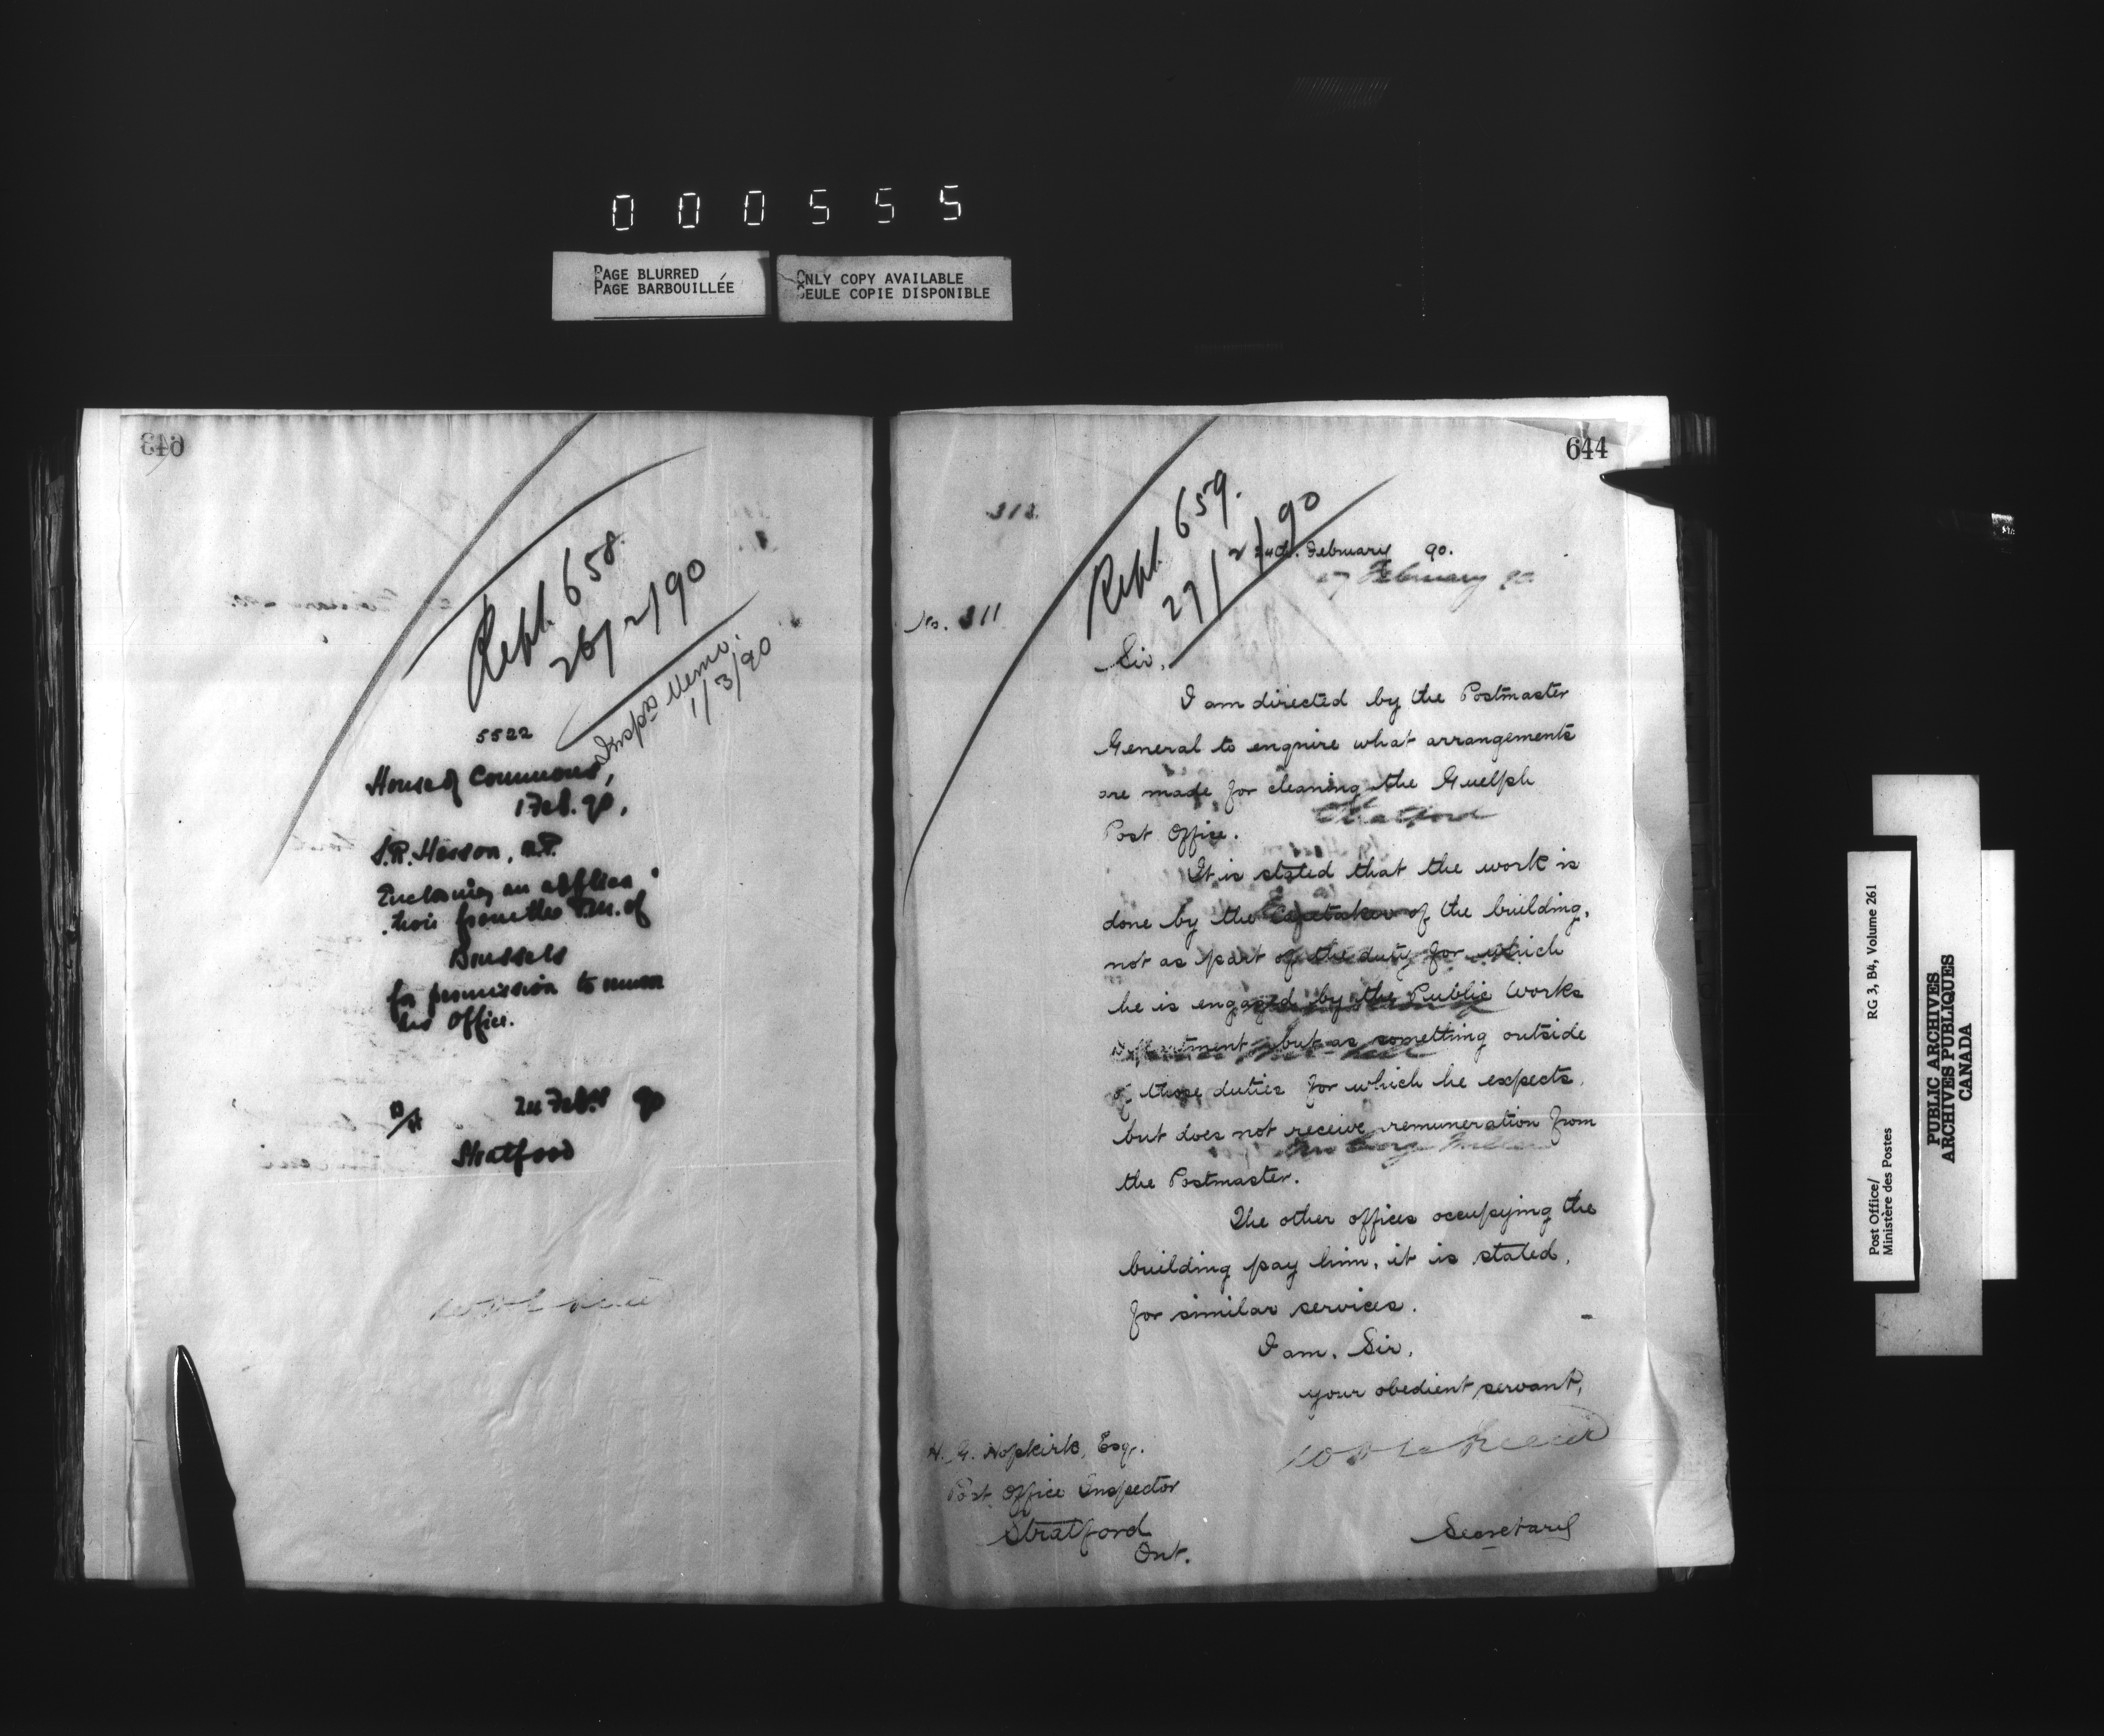 000555
PAGE BLURRED
PAGE BARBOUILLÉE
ONLY COPY AVAILABLE
SEULE COPIE DISPONIBLE
643
Repl. 658.
26/2/90
Insprs Memo.
1/3/90
5522
House of Commons,
1 Feb. 90.
S.R. Hesson, M.P.
Enclosing an applica
tion from the P.M. of
Brussels
for permission to
his office.
24 Feby 90
Stratford
644
313
Repl. 659.
27/2/90
February 90.
27 February 90
No. 311
Sir,
I am directed by the Postmaster
General to enquire what arrangements
are made for cleaning the Guelph
Post Office.
Stratford
It is stated that the work is
done by the Caretaker of the building,
not as part of the duty for which
he is engaged by the Public Works
Department, but as something outside
of those duties for which he expects,
but does not receive, remuneration from
the Postmaster.
The other offices occupying the
building pay him, it is stated,
for similar services.
I am, Sir,
your obedient servant,
H. G. Hopkirk, Esq.
Post Office Inspector
Stratford
Ont.
Secretary
Post Office/
Ministère des Postes
RG 3, B4, Volume 261
PUBLIC ARCHIVES
ARCHIVES PUBLIQUES
CANADA